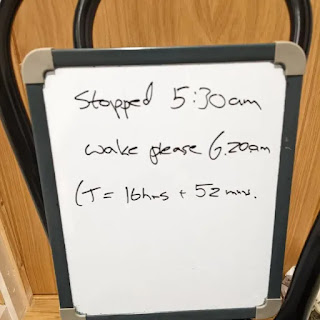 Stopped 5:30am
wake please 6.20am
(T = 16hrs + 52 mins.